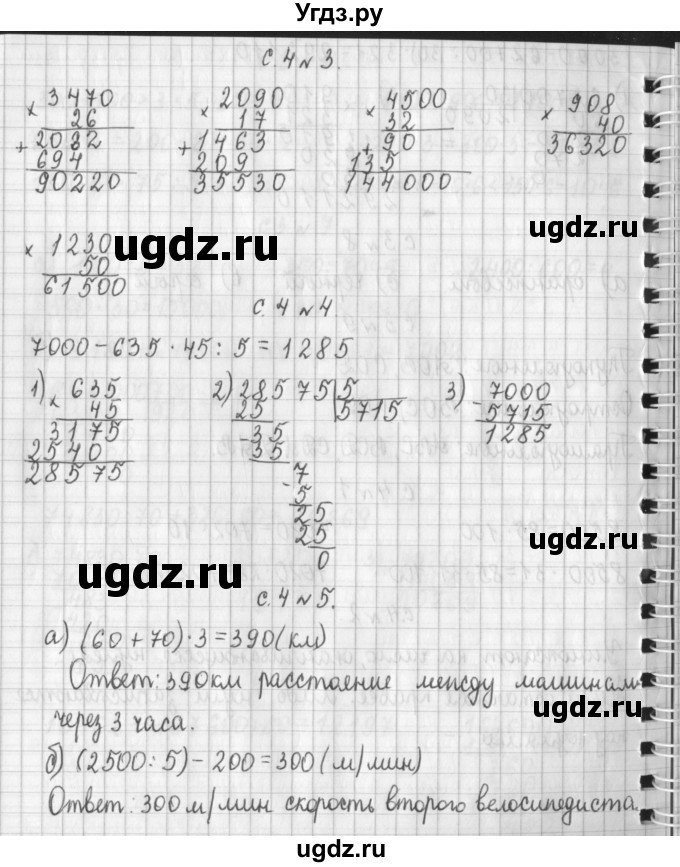 Угдз.ру
с. 4 № 3.
× 3470
26
+ 2082
694
90220
× 2090
17
+ 1463
209
35530
× 4500
32
+ 90
135
144000
× 908
40
36320
× 1230
50
61500
ugdz.ru
ugdz.ru
с. 4 № 4.
7000 - 635 · 45 : 5 = 1285
1) × 635
45
3175
2540
28575
2) 28575 | 5
25 5715
- 35
35
- 7
5
25
25
0
3) - 7000
5715
1285
ugdz.ru
ugdz.ru
с. 4 № 5.
а) (60 + 70) · 3 = 390 (км)
Ответ: 390 км расстояние между машинам
ugdz.ru
через 3 часа.
б) (2500 : 5) - 200 = 300 (м/мин)
Ответ: 300 м/мин скорость второго велосипедиста.
ugdz.ru